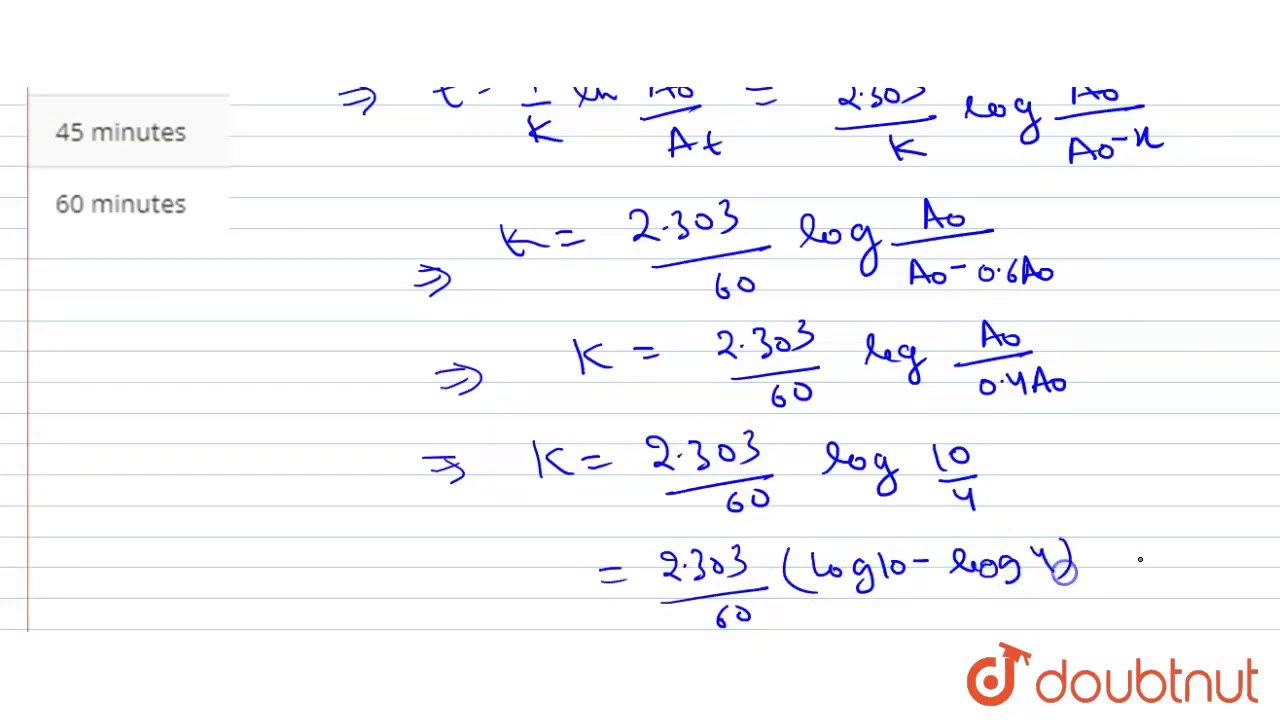 45 minutes
60 minutes
⇒ t = 1/K ln A0/At = 2.303/K log A0/A0-x
⇒ K = 2.303/60 log A0/A0-0.6A0
⇒ K = 2.303/60 log A0/0.4A0
⇒ K = 2.303/60 log 10/4
= 2.303/60 (log10 - log4)
doubtnut